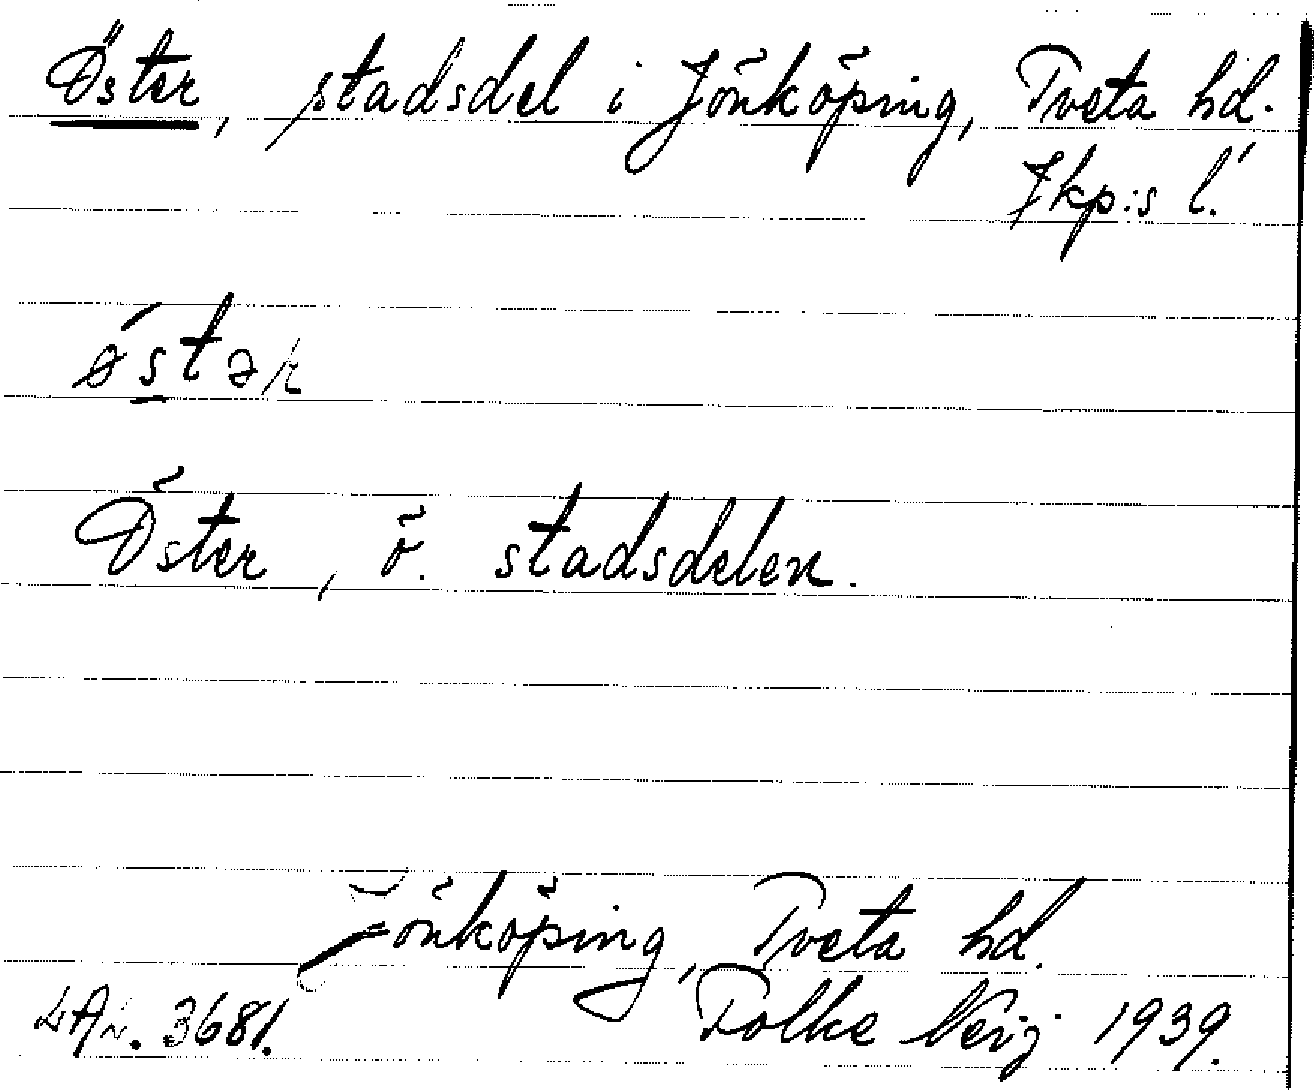 Öster, stadsdel i Jönköping, Tveta hd.
Jkp:s l.
östər
Öster, ö. stadsdelen.
Jönköping, Tveta hd.
3681. Folke 1939.